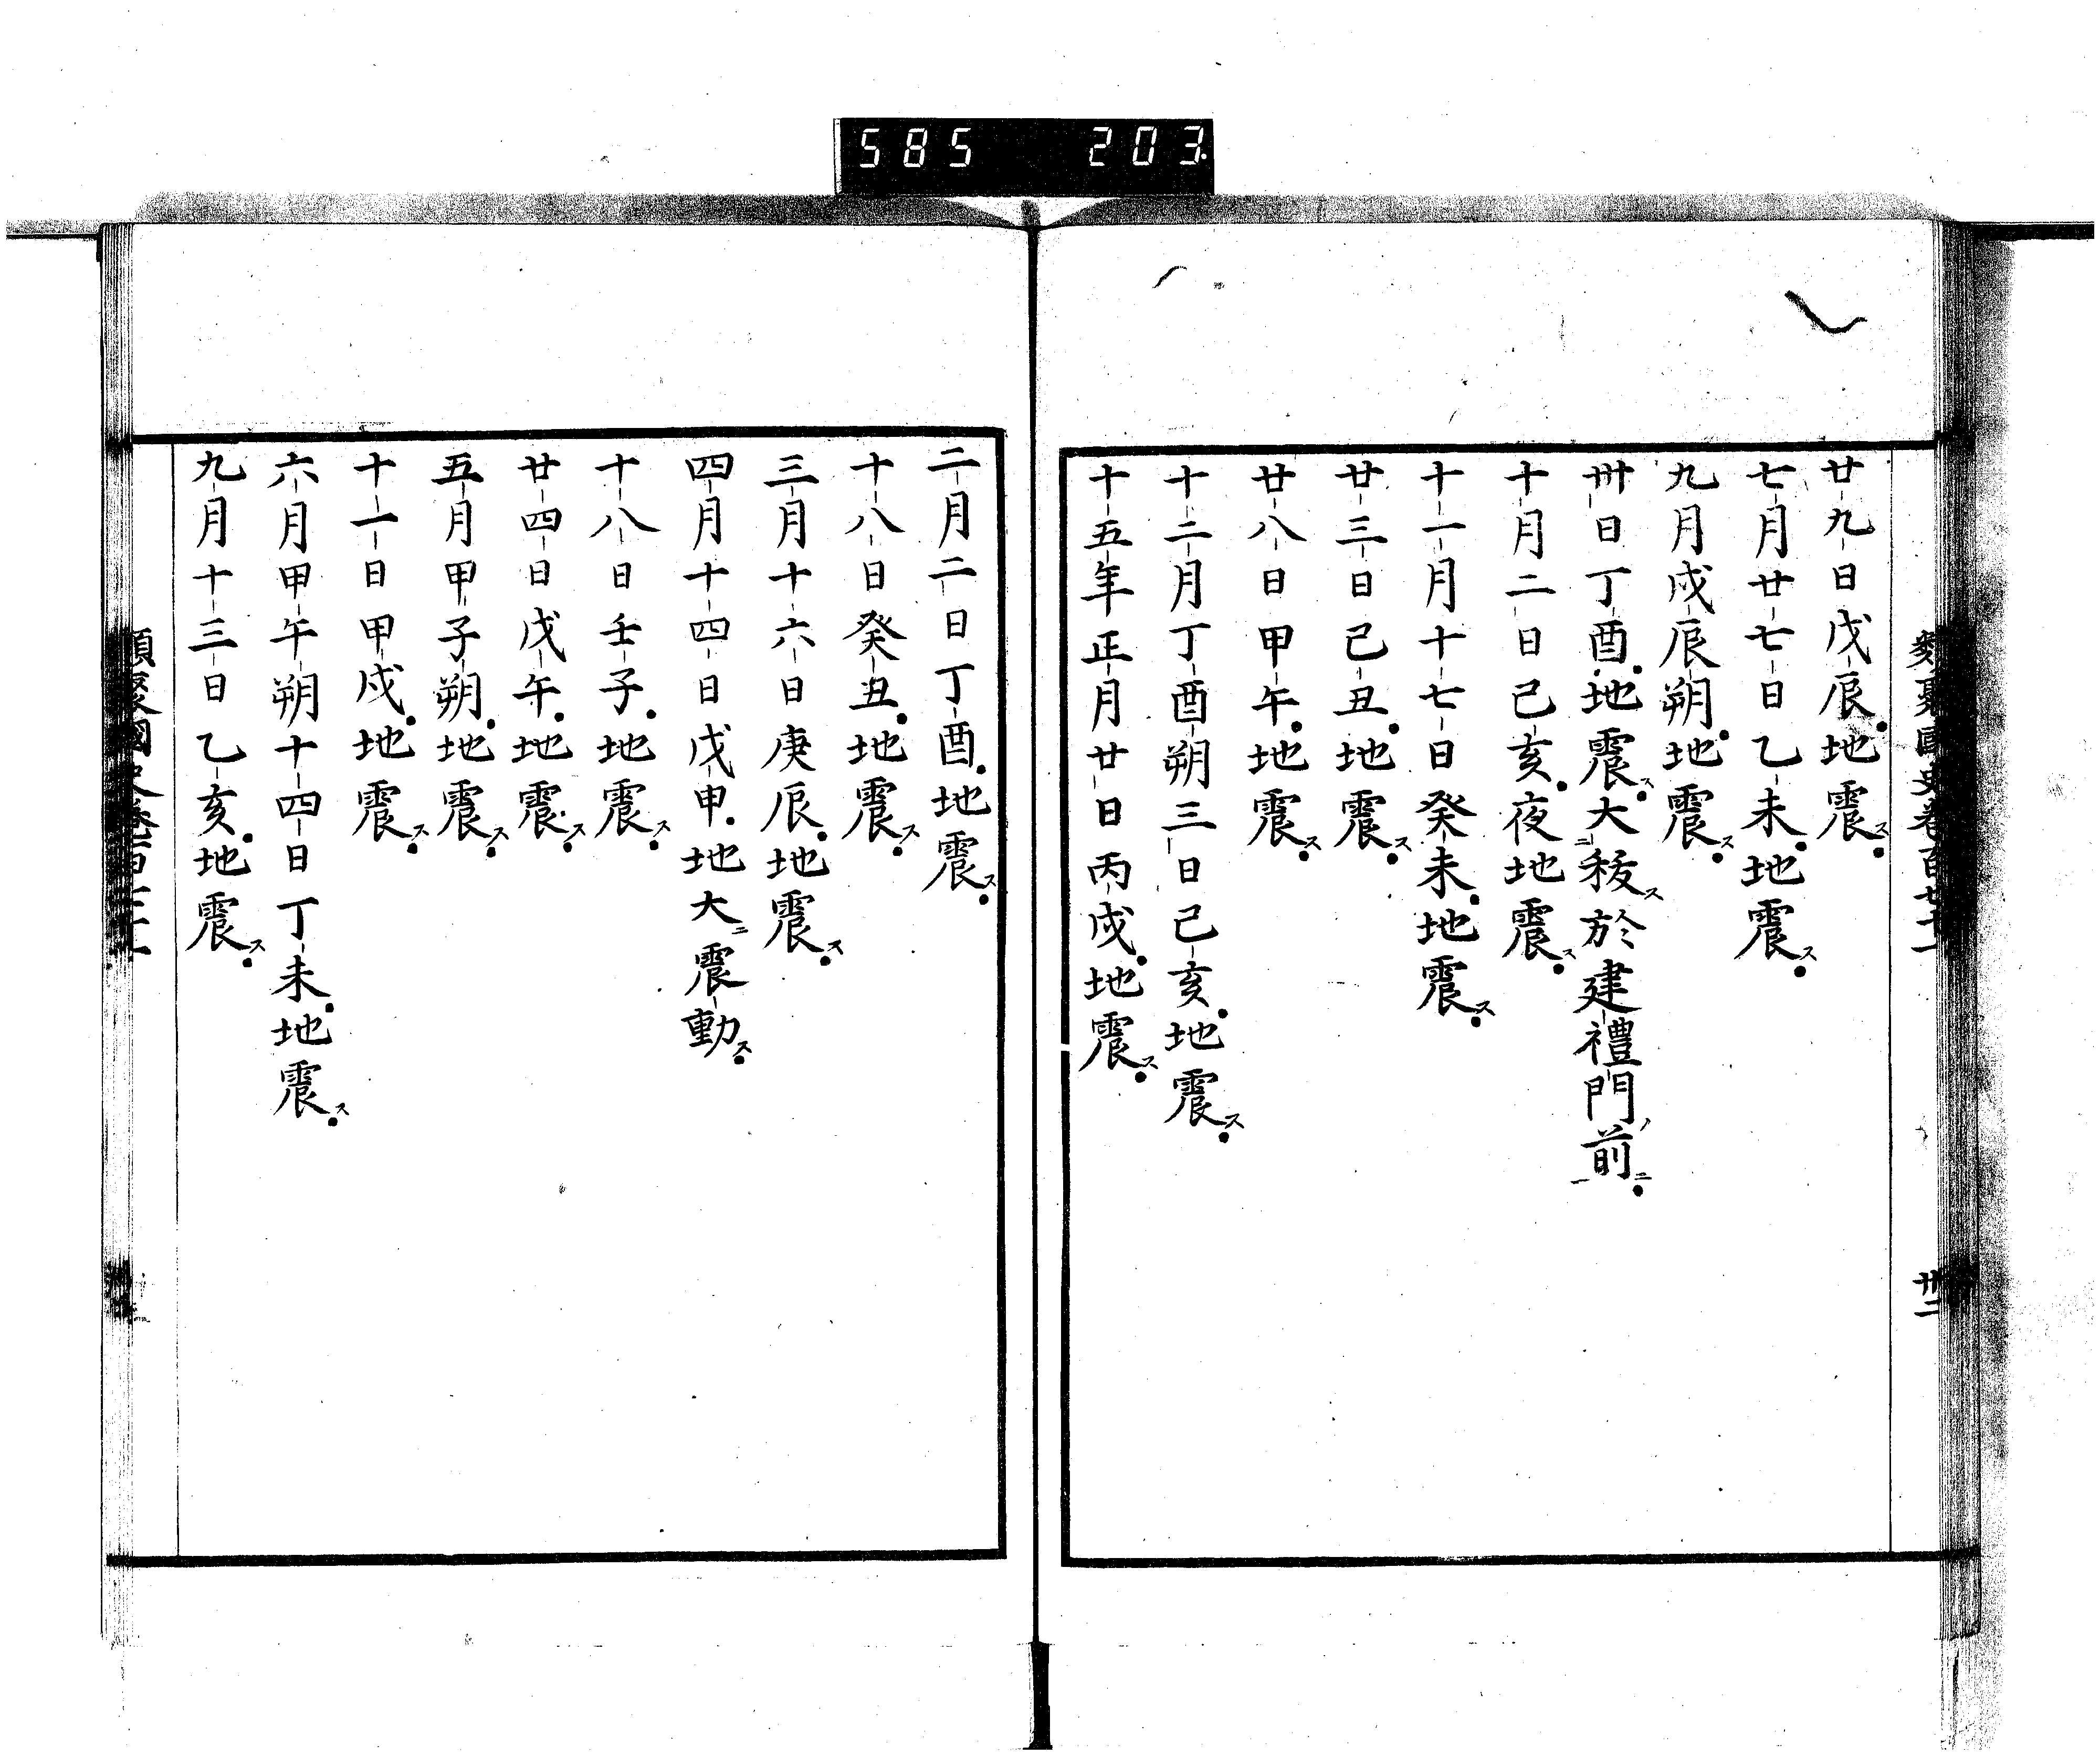 585 203
廿九日戊辰地震ス
七月廿七日乙未地震ス
九月戊辰朔地震ス
卅日丁酉地震ス大ニ秡ス於建禮門ノ前ニ
十月二日己亥夜地震ス
十一月十七日癸未地震ス
廿三日己丑地震ス
廿八日甲午地震ス
十二月丁酉朔三日己亥地震ス
十五年正月廿日丙戌地震ス
二月二日丁酉地震ス
十八日癸丑地震ス
三月十六日庚辰地震ス
四月十四日戊申地大ニ震動ス
十八日壬子地震ス
廿四日戊午地震ス
五月甲子朔地震ス
十一日甲戌地震ス
六月甲午朔十四日丁未地震ス
九月十三日乙亥地震ス
類聚國史卷百七十一
卅二